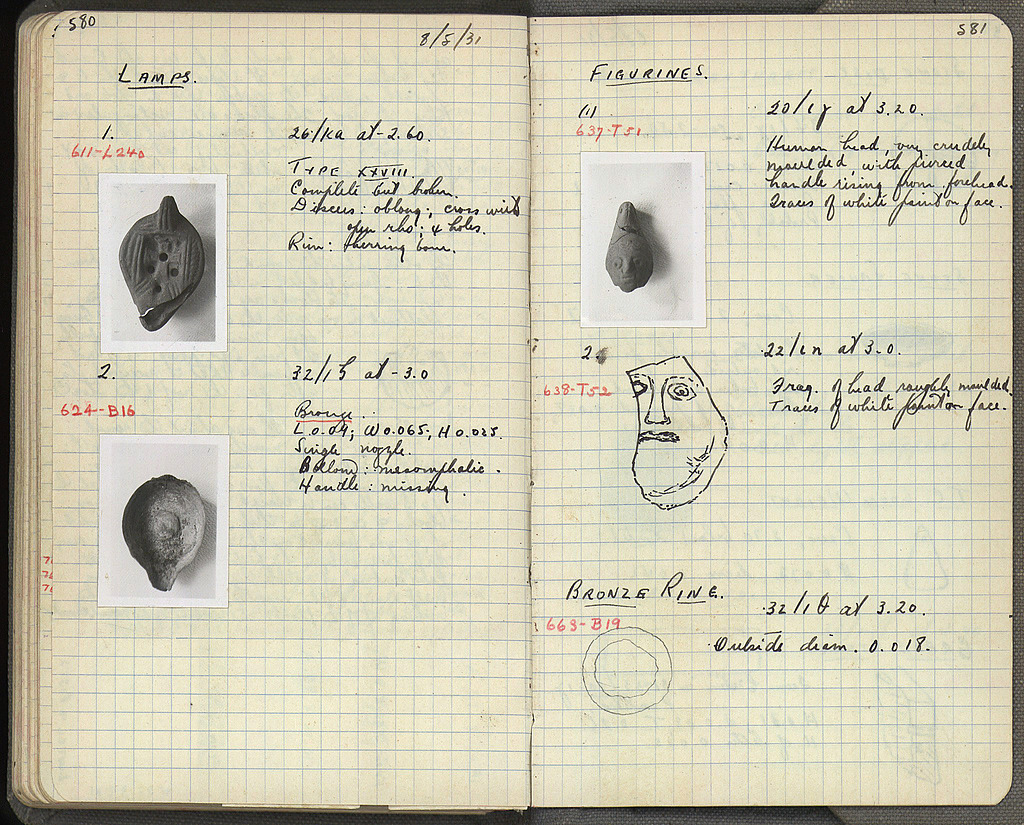 580
8/5/31
LAMPS.
1.
611-L240
26/ΚΑ at -2.60.
TYPE XXVIII.
Complete but broken.
Discus: oblong; cross with
open rho; 4 holes.
Rim: herring bone.
2.
624-B16
at -3.0
Bronze.
L 0.09; W 0.065; H 0.025.
Single nozzle.
Bottom: mesomphalic.
Handle: missing.
581
FIGURINES.
(1)
637-T51
at 3.20.
Human head, very crudely
moulded, with pierced
handle rising from forehead.
Traces of white paint on face.
2.
638-T52
at 3.0.
Frag. of head roughly moulded.
Traces of white paint on face.
BRONZE RING.
663-B19
32/ΙΘ at 3.20.
Outside diam. 0.018.